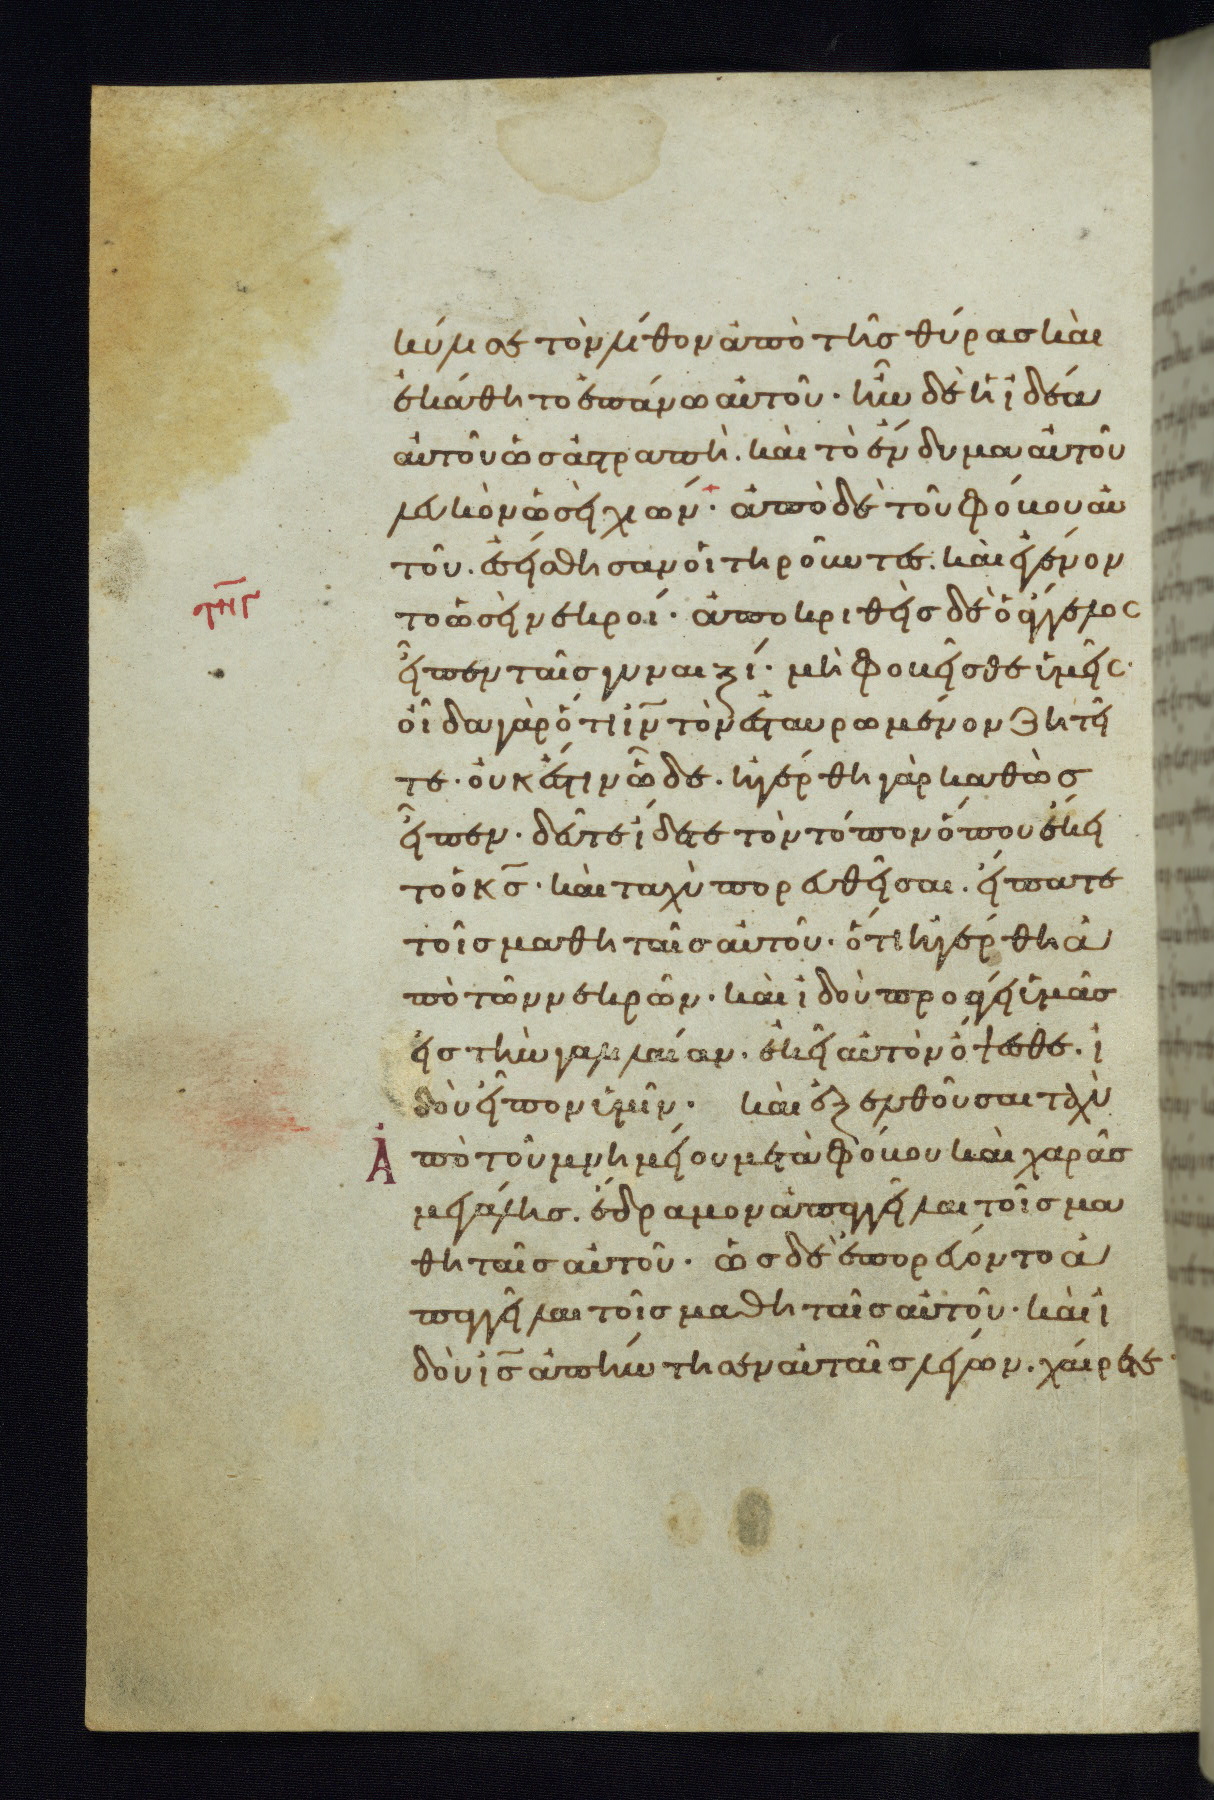 κύλισε τὸν λίθον ἀπὸ τῆς θύρας καὶ
ἐκάθητο ἐπάνω αὐτοῦ· ἦν δὲ ἡ ἰδέα
αὐτοῦ ὡς ἀστραπὴ. καὶ τὸ ἔνδυμα αὐτοῦ
λευκὸν ὡσεὶ χιών· ἀπὸ δὲ τοῦ φόβου αὐ
τοῦ. ἐσείσθησαν οἱ τηροῦντες. καὶ ἐγένον
το ὡσεὶ νεκροί· ἀποκριθεὶς δὲ ὁ ἄγγελος
εἶπεν ταῖς γυναιξί· μὴ φοβεῖσθε ὑμεῖς·
οἶδα γὰρ ὅτι ιν̅ τὸν ἐσταυρωμένον ζητεῖ
τε· οὐκ ἔστιν ὧδε. ἠγέρθη γὰρ καθὼς
εἶπεν· δεῦτε ἴδετε τὸν τόπον ὅπου ἔκει
το ὁ κς̅· καὶ ταχὺ πορευθεῖσαι. εἴπατε
τοῖς μαθηταῖς αὐτοῦ· ὅτι ἠγέρθη ἀ
πὸ τῶν νεκρῶν· καὶ ἰδοὺ προάγει ὑμᾶς
εἰς τὴν γαλιλαίαν. ἐκεῖ αὐτὸν ὄψεσθε. ἰ
δοὺ εἶπον ὑμῖν· καὶ ἐξελθοῦσαι ταχὺ
Ἀπὸ τοῦ μνημείου μετὰ φόβου καὶ χαρᾶς
μεγάλης. ἔδραμον ἀπαγγεῖλαι τοῖς μα
θηταῖς αὐτοῦ· ὡς δὲ ἐπορεύοντο ἀ
παγγεῖλαι τοῖς μαθηταῖς αὐτοῦ· καὶ ἰ
δοὺ ις̅ ἀπήντησεν αὐταῖς λέγων. χαίρετε·